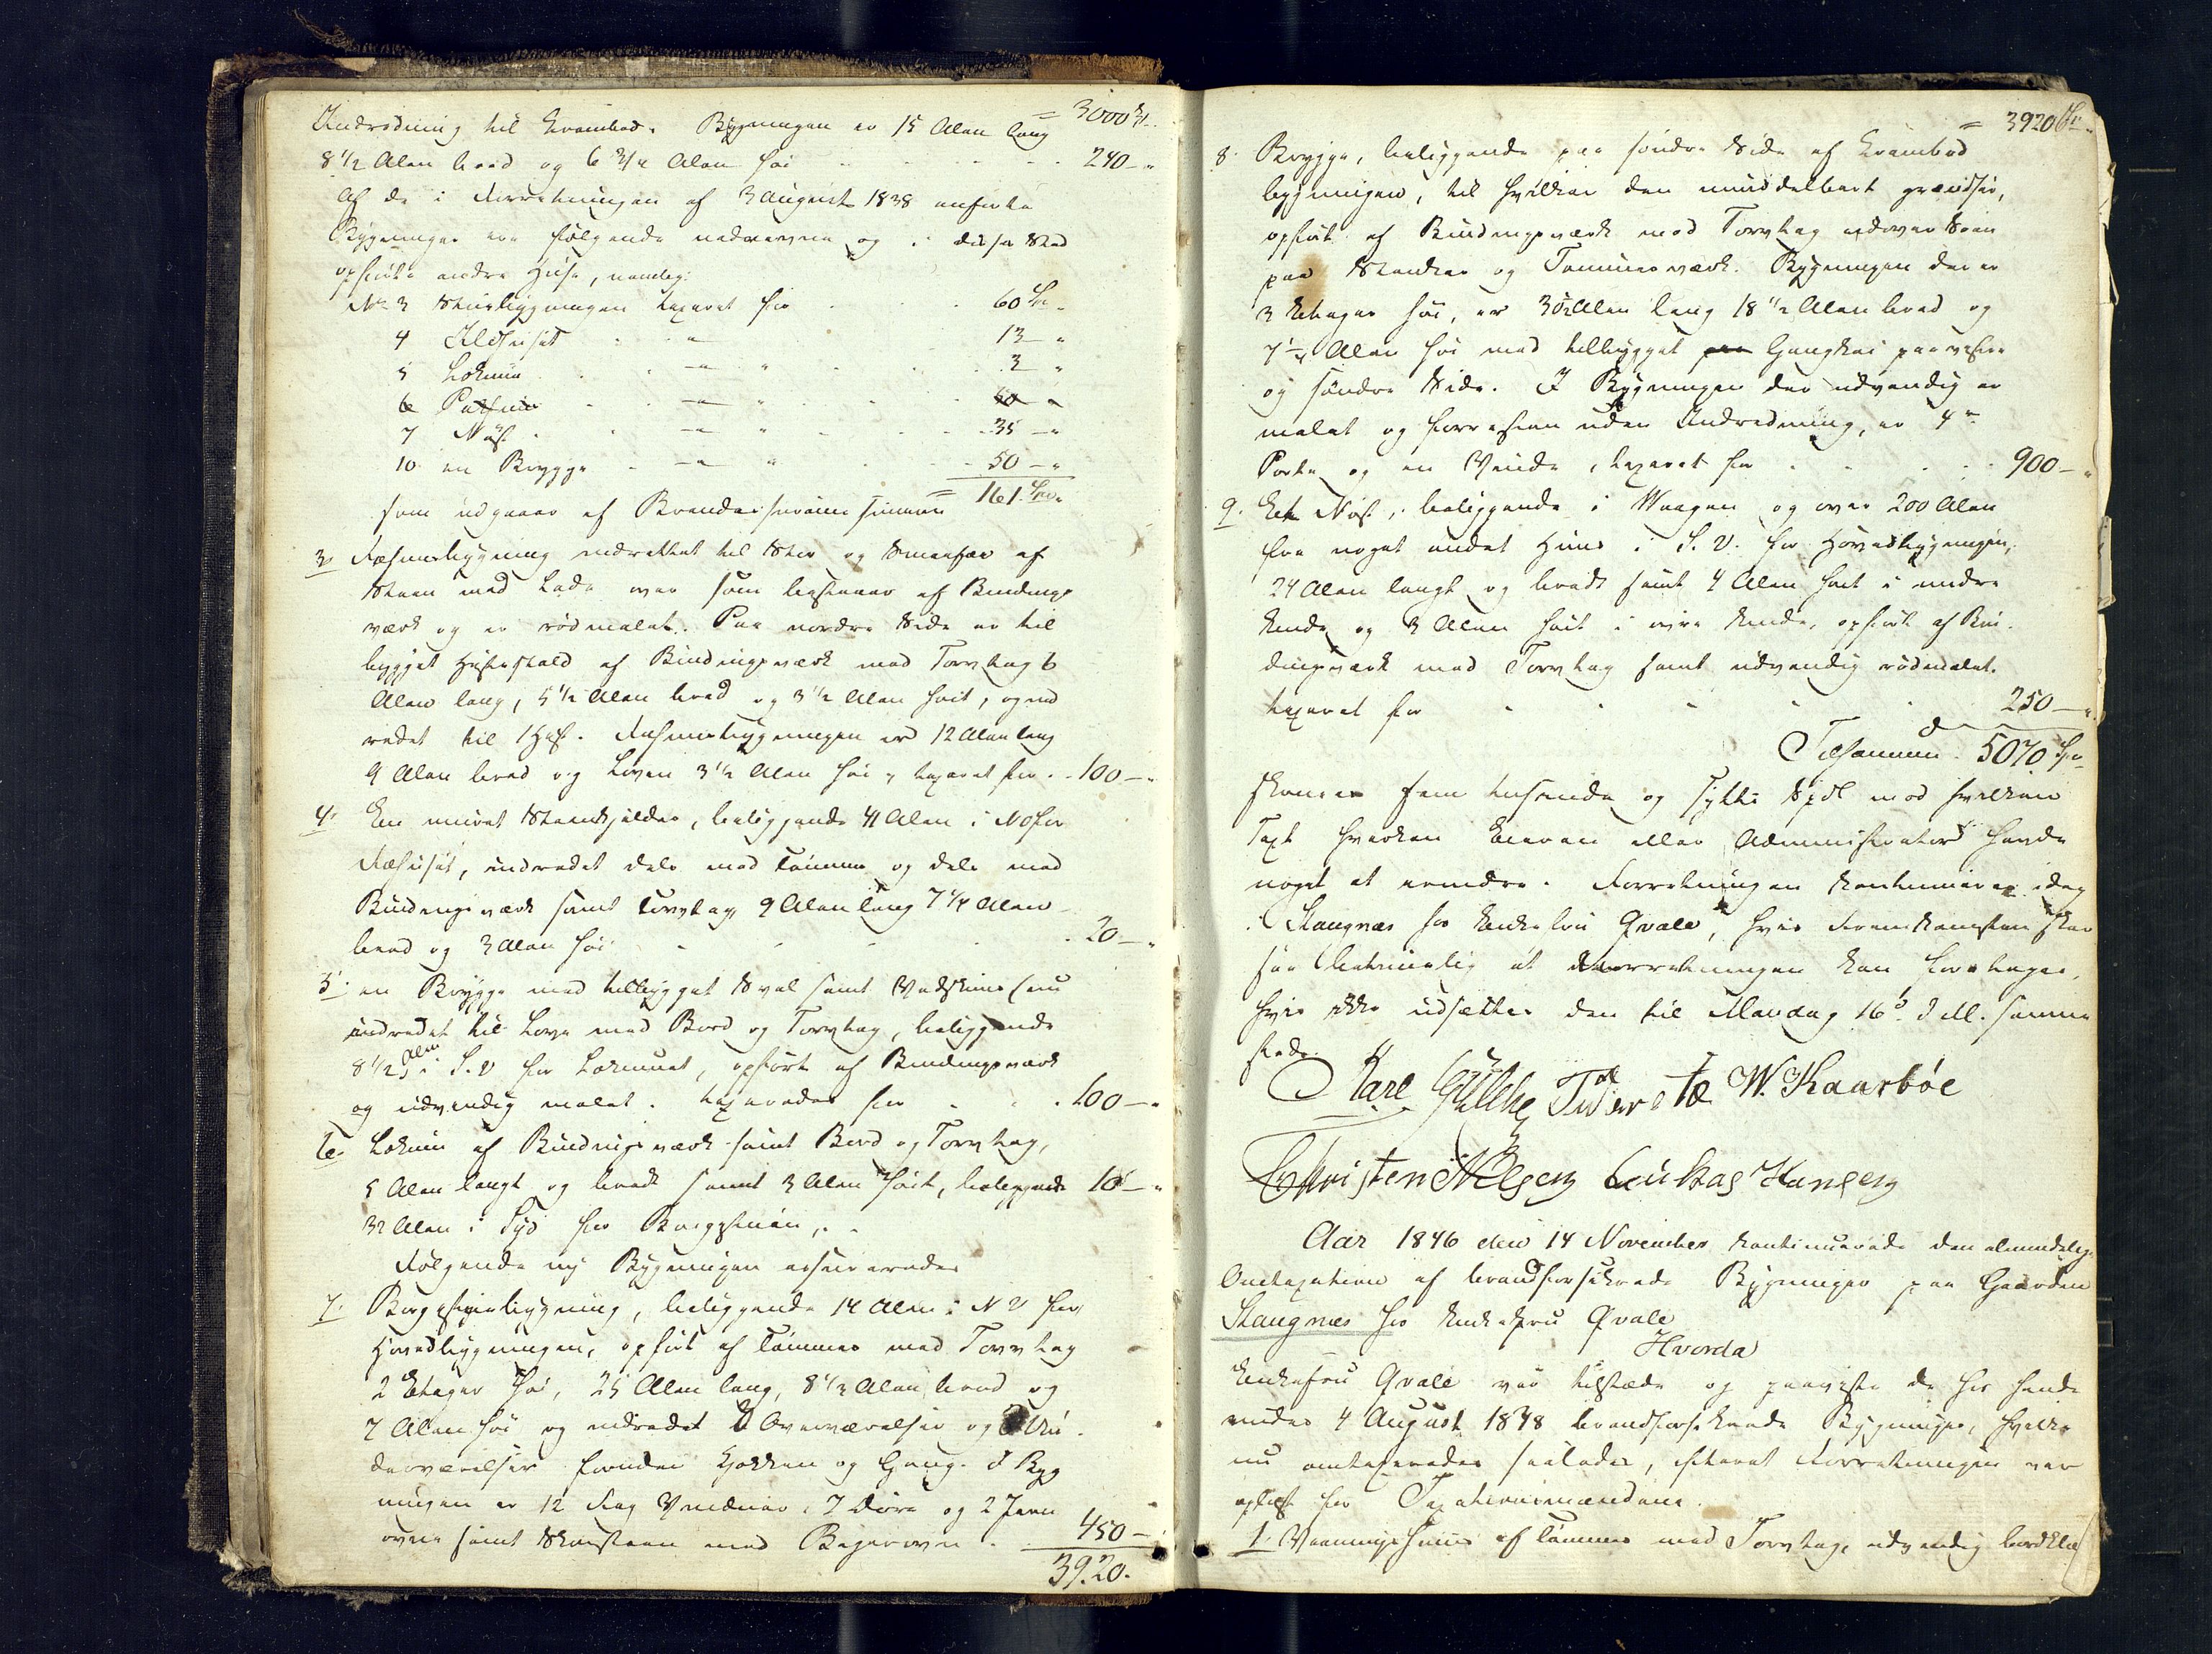 = 3000 "
Indredning til Krambod. Bygningen er 15 Alen lang
8 1/2 Alen bred og 6 3/4 Alen høi 240 – "
Af de i Forretningen af 3 August 1838 anførte
Bygninger ere følgende nedrevne og i disses Sted
opførte andre Huse, nemlig:
No 3 Stuebygningen taxeret for 60 Spd.
4 Ildhuset " 13 – "
5 Lokum – " – " 3 "
6 – " – "
7 Nøst – " – " 35 – "
10 en Brygge – " – " 50 – "
som udgaaer af Brandassurancesummen = 161 Spd.
3. Fæhuusbygning indrettet til Stor og Smaafæ af
Steen med Lade over som bestaaer af Bindings
værk og er rødmalet. Paa nordre Side er til
bygget Hestestald af Bindingsværk med Torvtag 6
Alen lang, 5 1/2 Alen bred og 3 1/2 Alen høit, og ind
redet til 1 Hest. Fæhuusbygningen er 12 Alen lang
9 Alen bred og Laven 3 1/2 Alen høi, taxeret for 100 – "
4. En muret Steenkjelder, beliggende 41 Alen i NO for
Fæhuset, indredet dels med Tømmer og dels med
Bindingsværk samt Torvtag, 9 Alen lang 7 1/4 Alen
bred og 3 Alen høi 20 – "
5. en Brygge med tilbygget Sval samt Vedskuur (nu
indredet til Love med Bord og Torvtag, beliggende
8 1/2 Alen i S.V for Lokumet, opført af Bindingsværk
og udvendig malet. taxeredes for 100 – "
6. Lokum af Bindingsværk samt Bord og Torvtag,
5 Alen langt og bredt samt 3 Alen høit, beliggende 10 – "
32 Alen i Syd for Borgstuen,
Følgende ny Bygninger assureredes
7. Borgstuebygning, beliggende 14 Alen i NV for
Hovedbygningen, opført af Tømmer med Torvtag
2 Etager høi, 25 Alen lang, 8 1/2 Alen bred og
7 Alen høi og indredet Overværelser og Un
derværelser foruden Kjøkken og Gang. I Byg
ningen er 12 Fag Vinduer, 7 Døre og 2 Jern
ovne samt Skorsteen med Bagerovn 450 –
3920.
= 3920 Spd.
8. Brygge, beliggende paa søndre Side af Krambod
bygningen, til hvilken den umiddelbart grændser,
opført af Bindingsværk med Torvtag udover Søen
paa Stenkar og Tømmerværk. Bygningen der er
3 Etager høi, er 30 Alen lang 18 1/2 Alen bred og
7 1/4 Alen høi med tilbygget paa Gangkai paa vestre
og søndre Side. I Bygningen der udvendig er
malet og forresten uden Indredning, er 4re
Porte og en Vinde, taxeret for 900 – "
9. Et Nøst, beliggende i Vaagen og over 200 Alen
fra noget andet Huus i S.V. for Hovedbygningen,
24 Alen langt og bredt samt 4 Alen høit i nedre
Ende og 3 Alen høit i øvre Ende, opført af Bin
dingsværk med Torvtag samt udvendig rødmalet.
taxeret for 250 – "
Tilsammen 5070 Spd
skriver fem tusende og sytti Spdl mod hvilken
Taxt hverken Eieren eller Administrator havde
noget at erindre. Forretningen kontinueres idag
i Stangnæs hos Enkefru Qvale, hvis Fremkomsten sker
saa betimelig at Forretningen kan foretages,
hvis ikke udsættes den til Mandag 16de d. M. samme
steds.
W. Kaarbøe
Christen Nilsen Lukas Hansen
Aar 1846 den 14 November kontinuerede den almindelige
Omtaxation af brandforsikrede Bygninger paa Gaarden
Stangnæs hos Enkefru Qvale
Hvorda
Enkefru Qvale var tilstæde og paaviste de for hende
under 4 August 1838 brandforsikrede Bygninger, hvilke
nu omtaxeredes saaledes, efterat Forretningen var
oplæst for Taxationsmændene.
1. Vaaningshuus af Tømmer med Torvtag, udvendig bordklæ